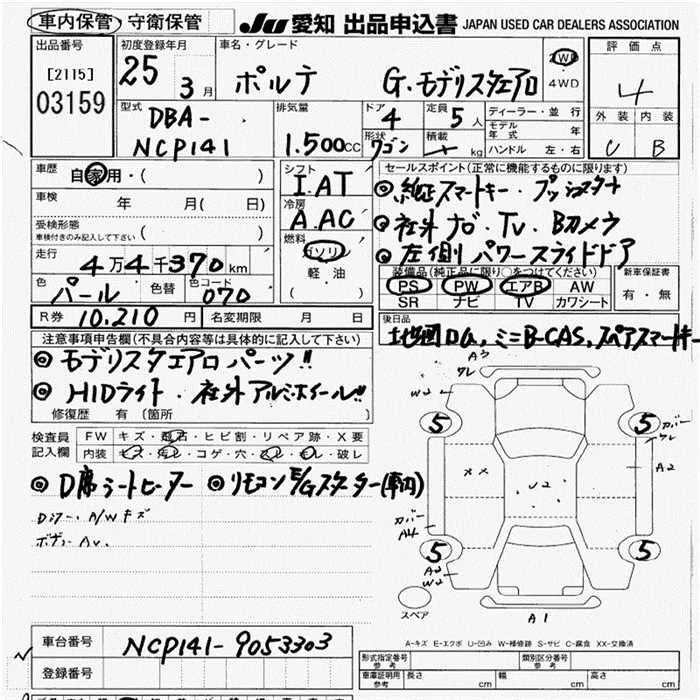 車内保管・守衛保管 JU 愛知 出品申込書 JAPAN USED CAR DEALERS ASSOCIATION
出品番号 初度登録年月 車名・グレード 2WD 評価点
[2115] 25 3月 ポルテ G.モデリスタエアロ 4WD 4
03159
型式 排気量 ドア 定員 ディーラー・並行 外装 内装
DBA- 4 5人 モデル年式 年
NCP141 1.500cc 形状 ワゴン 積載 kg ハンドル 左・右 C B
車歴 自家用・( ) シフト I.AT セールスポイント(正常に機能するものに限ります)
◎純正スマートキー・プッシュスタート
車検 年 月( 日) 冷房 A.AC ◎社外ナビ・TV・Bカメラ
受検形態 車検付きのみ記入して下さい ( )
◎左側パワースライドドア
走行 4万4千370km 燃料 ガソリン 軽油 ( )
装備品(純正品に限り○をつけてください) 新車保証書
色 パール 色替 色コード 070 PS PW エアB AW 有・無
SR ナビ TV カワシート
R券 10.210円 名変期限 月 日 後日品
地図DG,ミニB-CAS,スペアスマートキー
注意事項申告欄(不具合内容等は具体的に記入して下さい)
◎モデリスタエアロパーツ!!
◎HIDライト・社外アルミホイール!!
修復歴 有(箇所 )
検査員記入欄 FW キズ・飛石・ヒビ割・リペア跡・X要
内装 キズ・汚レ・コゲ・穴・スレ・キレ・破レ
◎D席シートヒーター ◎リモコンE/Gスターター(車内)
Dシター. A/Wキズ
ボディー Av.
A3 クレ
W2
5 5 カバー クレ
A2
xx U2
カバー A4
5 5
A2
W2
スペア A1
A-キズ E-エクボ U-凹み W-補修跡 S-サビ C-腐食 XX-交換済
車台番号 NCP141-9053303
登録番号
形式指定番号 参考 類別区分番号 参考
車庫証明用 参考 長さ cm 幅 cm 高さ cm